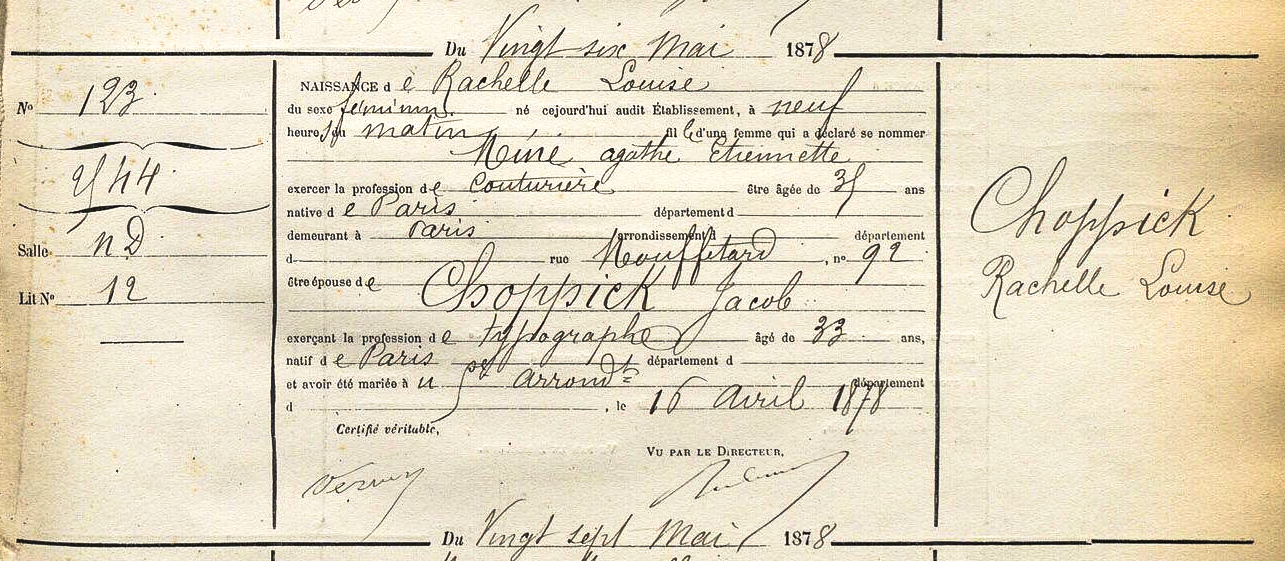 Du Vingt six Mai 1878
No 123
2544
Salle nD
Lit No 12
NAISSANCE de Rachelle Louise
du sexe féminin né cejourd'hui audit Établissement, à neuf
heures du matin fille d'une femme qui a déclaré se nommer
agathe Etiennette
exercer la profession de Couturière être âgée de 35 ans
native de Paris département d
demeurant à Paris arrondissement département
d rue Mouffetard, no 92
être épouse de Choppick Jacob
exerçant la profession de typographe âgé de 33 ans,
natif de Paris département d
et avoir été mariée à arrondt département
d , le 16 avril 1878
Certifié véritable,
VU PAR LE DIRECTEUR,
Choppick
Rachelle Louise
Du Vingt sept Mai 1878